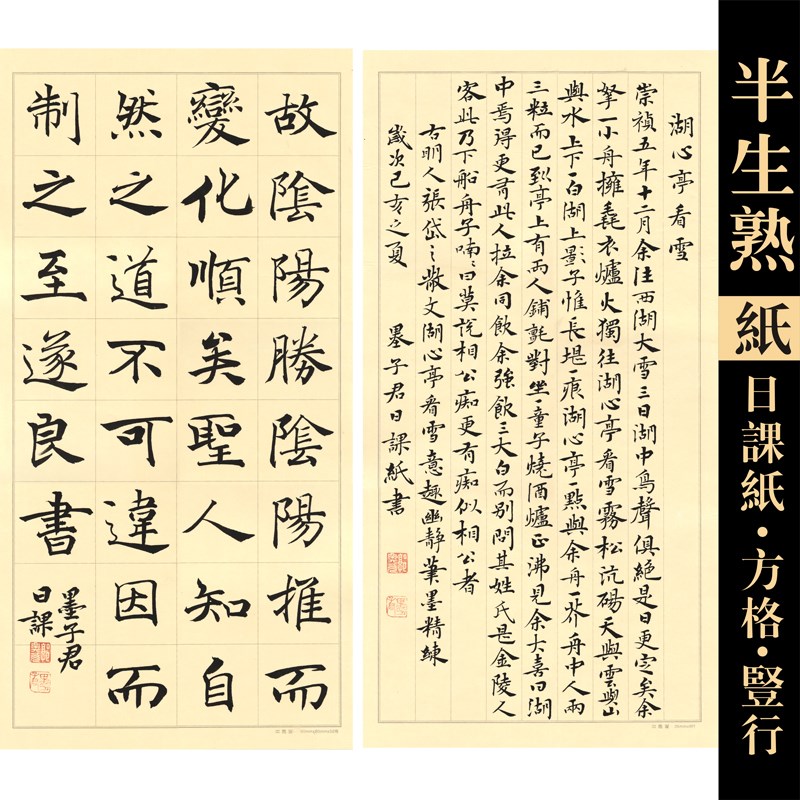 半生熟
紙
日課紙·方格·豎行
湖心亭看雪
崇禎五年十二月余住西湖大雪三日湖中鳥聲俱絕是日更定矣余
拏一小舟擁毳衣爐火獨往湖心亭看雪霧松沆碭天與雲與山
與水上下一白湖上影子惟長堤一痕湖心亭一點與余舟一芥舟中人兩
三粒而已到亭上有兩人鋪氈對坐一童子燒酒爐正沸見余大喜曰湖
中焉得更有此人拉余同飲余強飲三大白而別問其姓氏是金陵人
客此乃下船舟子喃〻曰莫說相公痴更有痴似相公者
右明人張岱之散文湖心亭看雪意趣幽靜筆墨精練
歲次己亥之夏 墨子君日課紙書
故陰陽勝陰陽推而
變化順矣聖人知自
然之道不可違因而
制之至遂良書
墨子君
日課